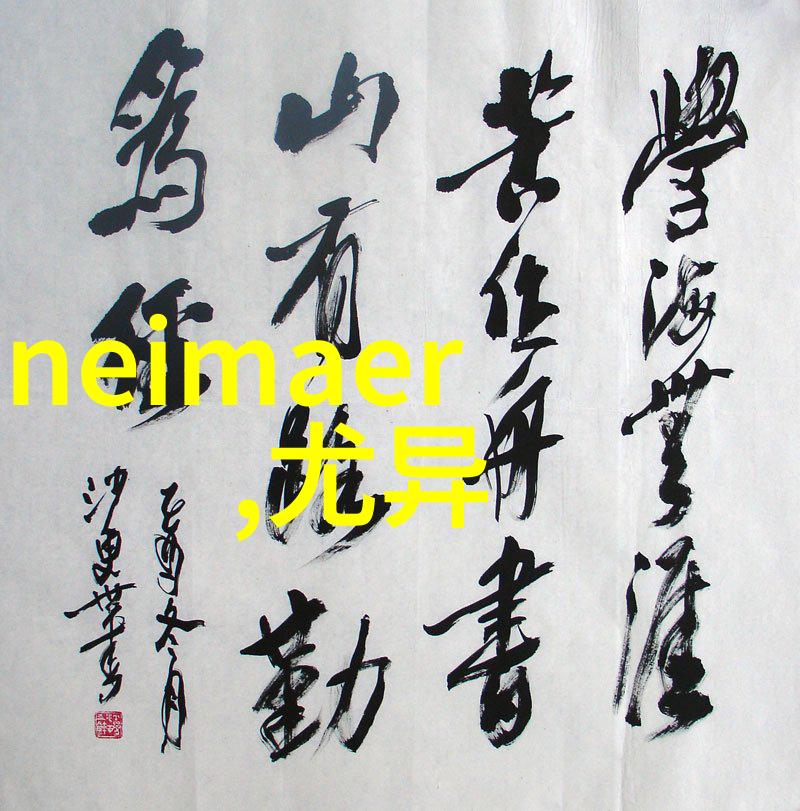 學海無涯
苦作舟書
山有路勤
為徑
乙酉冬月
沙更世書
neimaer
,尤异